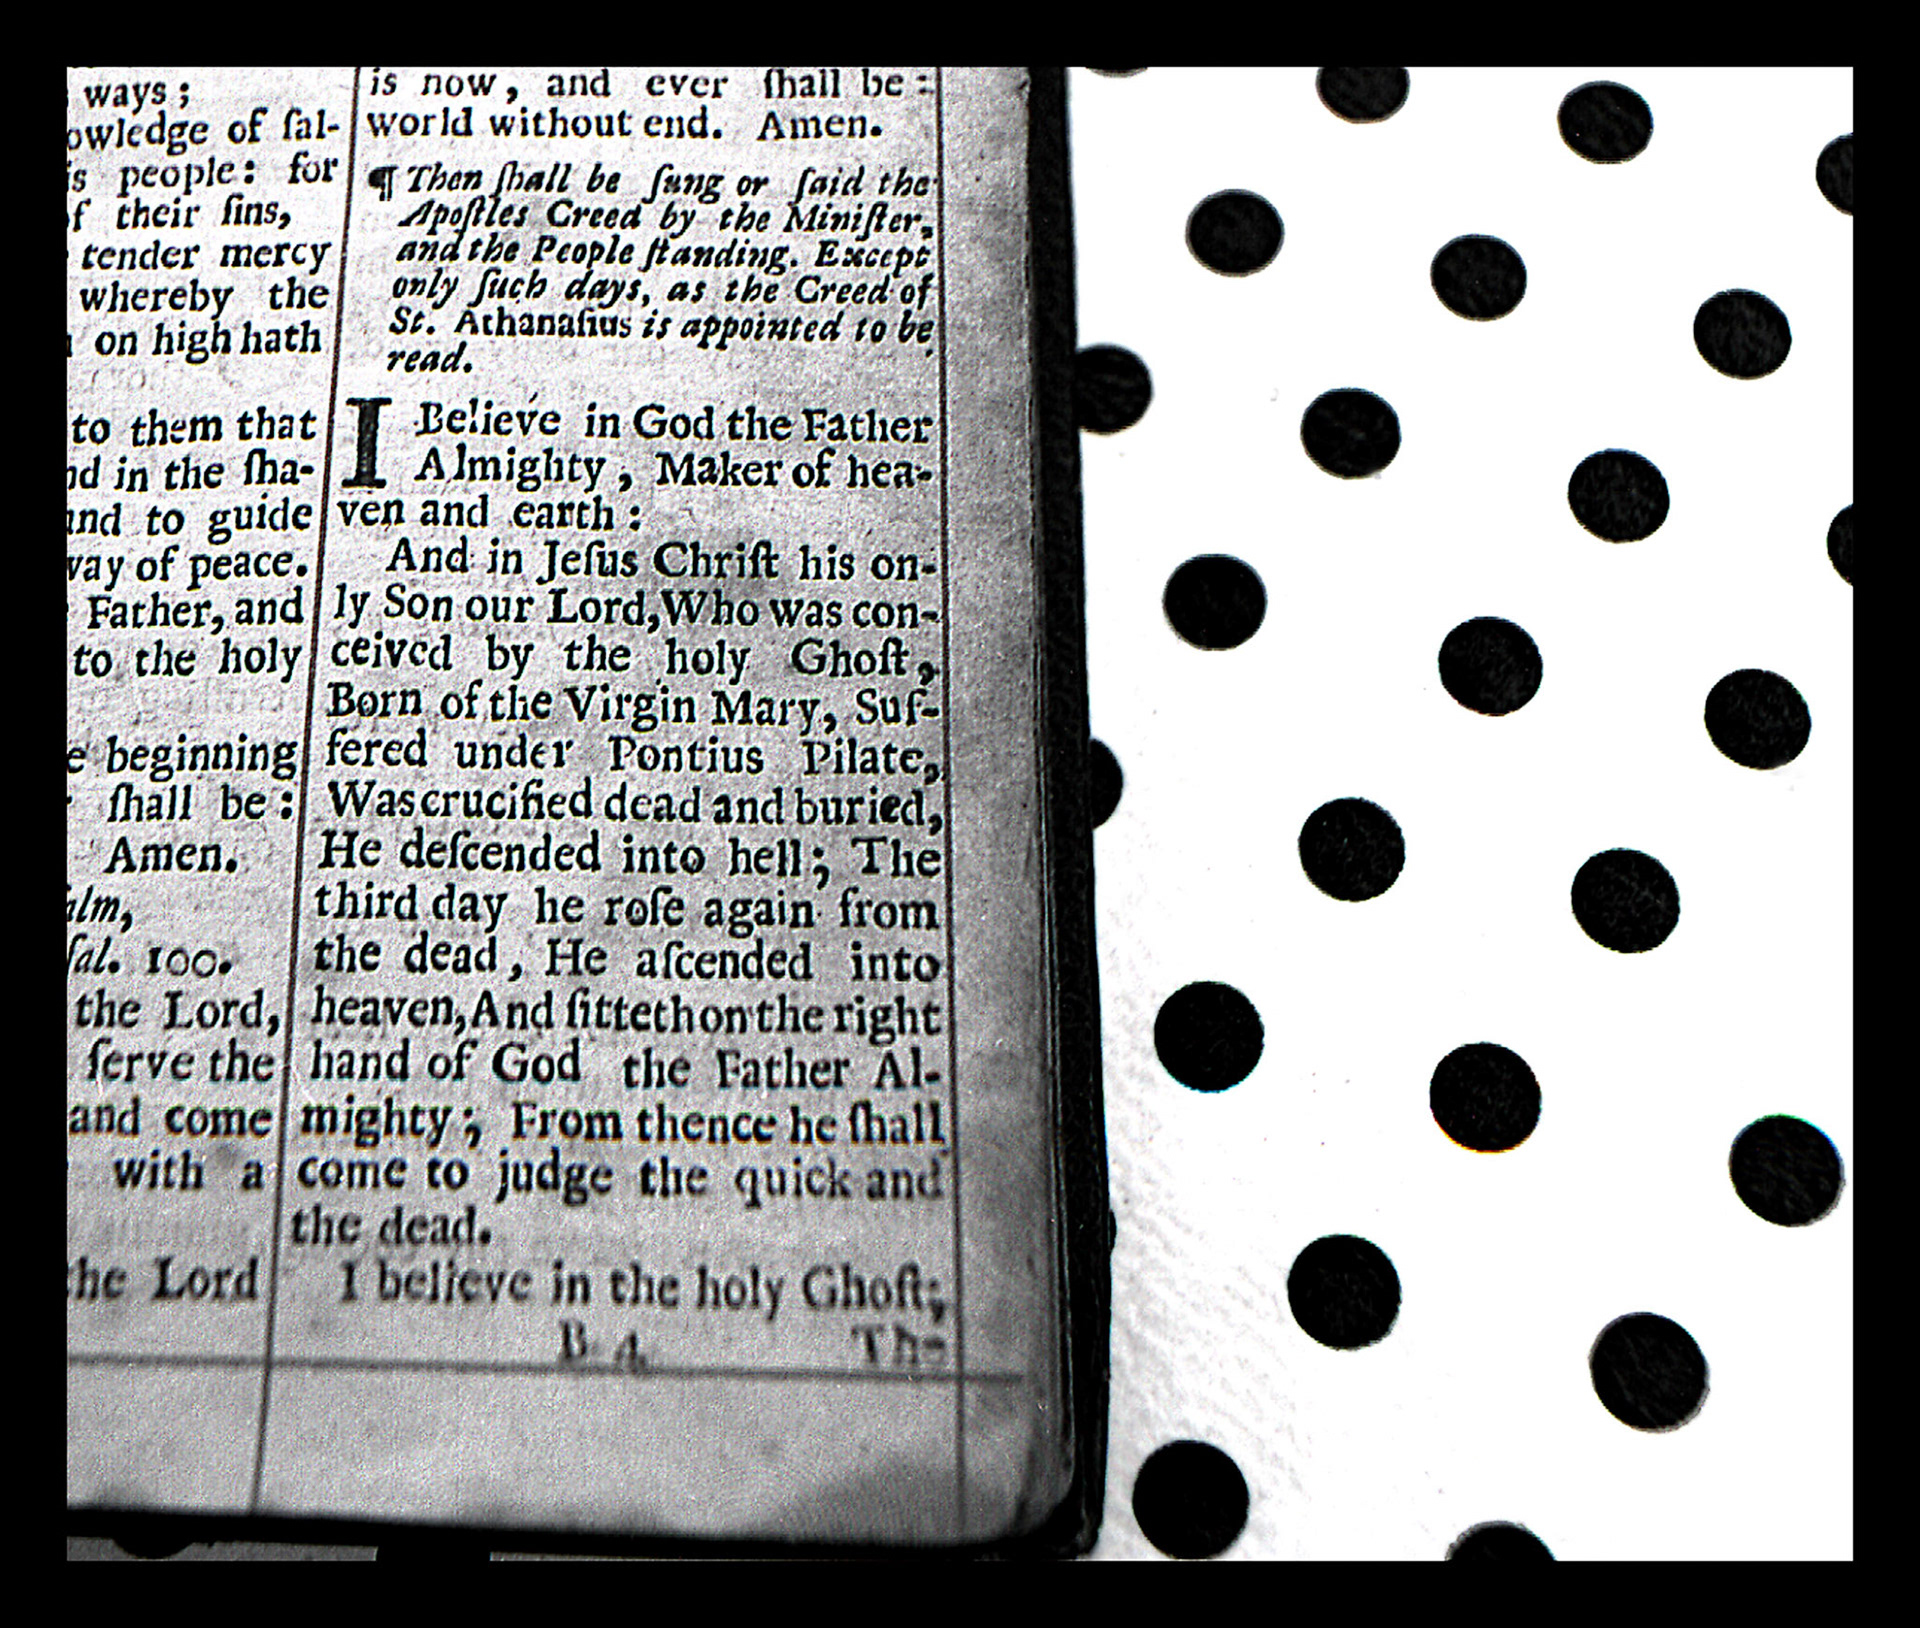 ways;
owledge of ſal-
s people: for
f their ſins,
tender mercy
whereby the
on high hath
to them that
nd in the ſha-
and to guide
way of peace.
Father, and
to the holy
e beginning
ſhall be:
Amen.
alm,
ſal. 100.
the Lord,
ſerve the
and come
with a
he Lord
is now, and ever ſhall be:
world without end. Amen.
¶ Then ſhall be ſung or ſaid the
Apoſtles Creed by the Miniſter,
and the People ſtanding. Except
only ſuch days, as the Creed of
St. Athanaſius is appointed to be
read.
I Believe in God the Father
Almighty, Maker of hea-
ven and earth:
And in Jeſus Chriſt his on-
ly Son our Lord, Who was con-
ceived by the holy Ghoſt,
Born of the Virgin Mary, Suf-
fered under Pontius Pilate,
Was crucified dead and buried,
He deſcended into hell; The
third day he roſe again from
the dead, He aſcended into
heaven, And ſitteth on the right
hand of God the Father Al-
mighty; From thence he ſhall
come to judge the quick and
the dead.
I believe in the holy Ghoſt;
B 4 The